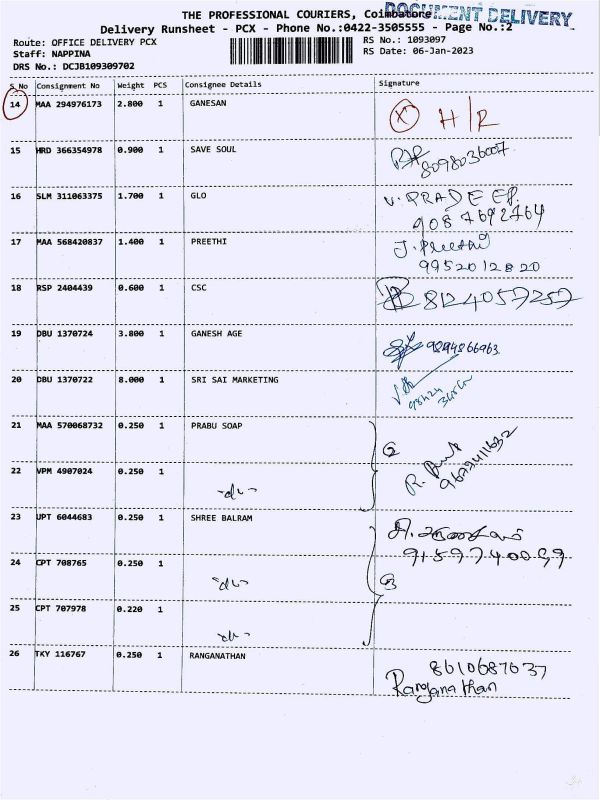 THE PROFESSIONAL COURIERS, Coimbatore
DOCUMENT DELIVERY
Delivery Runsheet - PCX - Phone No.:0422-3505555 - Page No.:2
Route: OFFICE DELIVERY PCX
RS No.: 1093097
Staff: NAPPINA
RS Date: 06-Jan-2023
DRS No.: DCJB109309702
S No Consignment No Weight PCS Consignee Details Signature
14 MAA 294976173 2.800 1 GANESAN X H/R
15 HRD 366354978 0.900 1 SAVE SOUL 8098036007
16 SLM 311063375 1.700 1 GLO V. PRADEEP.
9087692764
17 MAA 568420837 1.400 1 PREETHI J. Preethi
9952012820
18 RSP 2404439 0.600 1 CSC 8124057257
19 DBU 1370724 3.800 1 GANESH AGE 9894866963
20 DBU 1370722 8.000 1 SRI SAI MARKETING
21 MAA 570068732 0.250 1 PRABU SOAP 2
22 VPM 4907024 0.250 1
23 UPT 6044683 0.250 1 SHREE BALRAM
9159740099
24 CPT 708765 0.250 1 3
25 CPT 707978 0.220 1
26 TKY 116767 0.250 1 RANGANATHAN 8610687637
Ranganathan